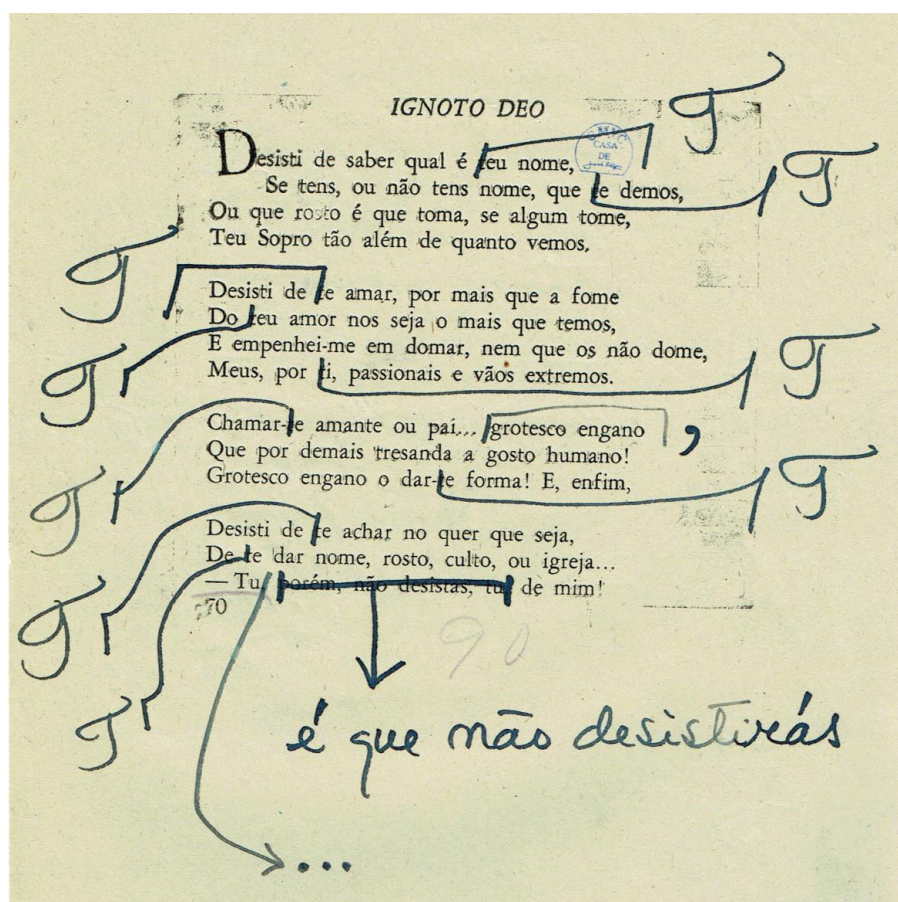 IGNOTO DEO
T
CMVC
CASA
DE
Desisti de saber qual é teu nome,
Se tens, ou não tens nome, que te demos,
T
Ou que rosto é que toma, se algum tome,
Teu Sopro tão além de quanto vemos.
T
Desisti de te amar, por mais que a fome
Do teu amor nos seja o mais que temos,
T
E empenhei-me em domar, nem que os não dome,
T
Meus, por ti, passionais e vãos extremos.
Chamar-te amante ou pai... grotesco engano
,
Que por demais tresanda a gosto humano!
T
Grotesco engano o dar-te forma! E, enfim,
T
Desisti de te achar no quer que seja,
T
De te dar nome, rosto, culto, ou igreja...
— Tu, porém, não desistas, tu, de mim!
70
90
T
é que não desistirás
...